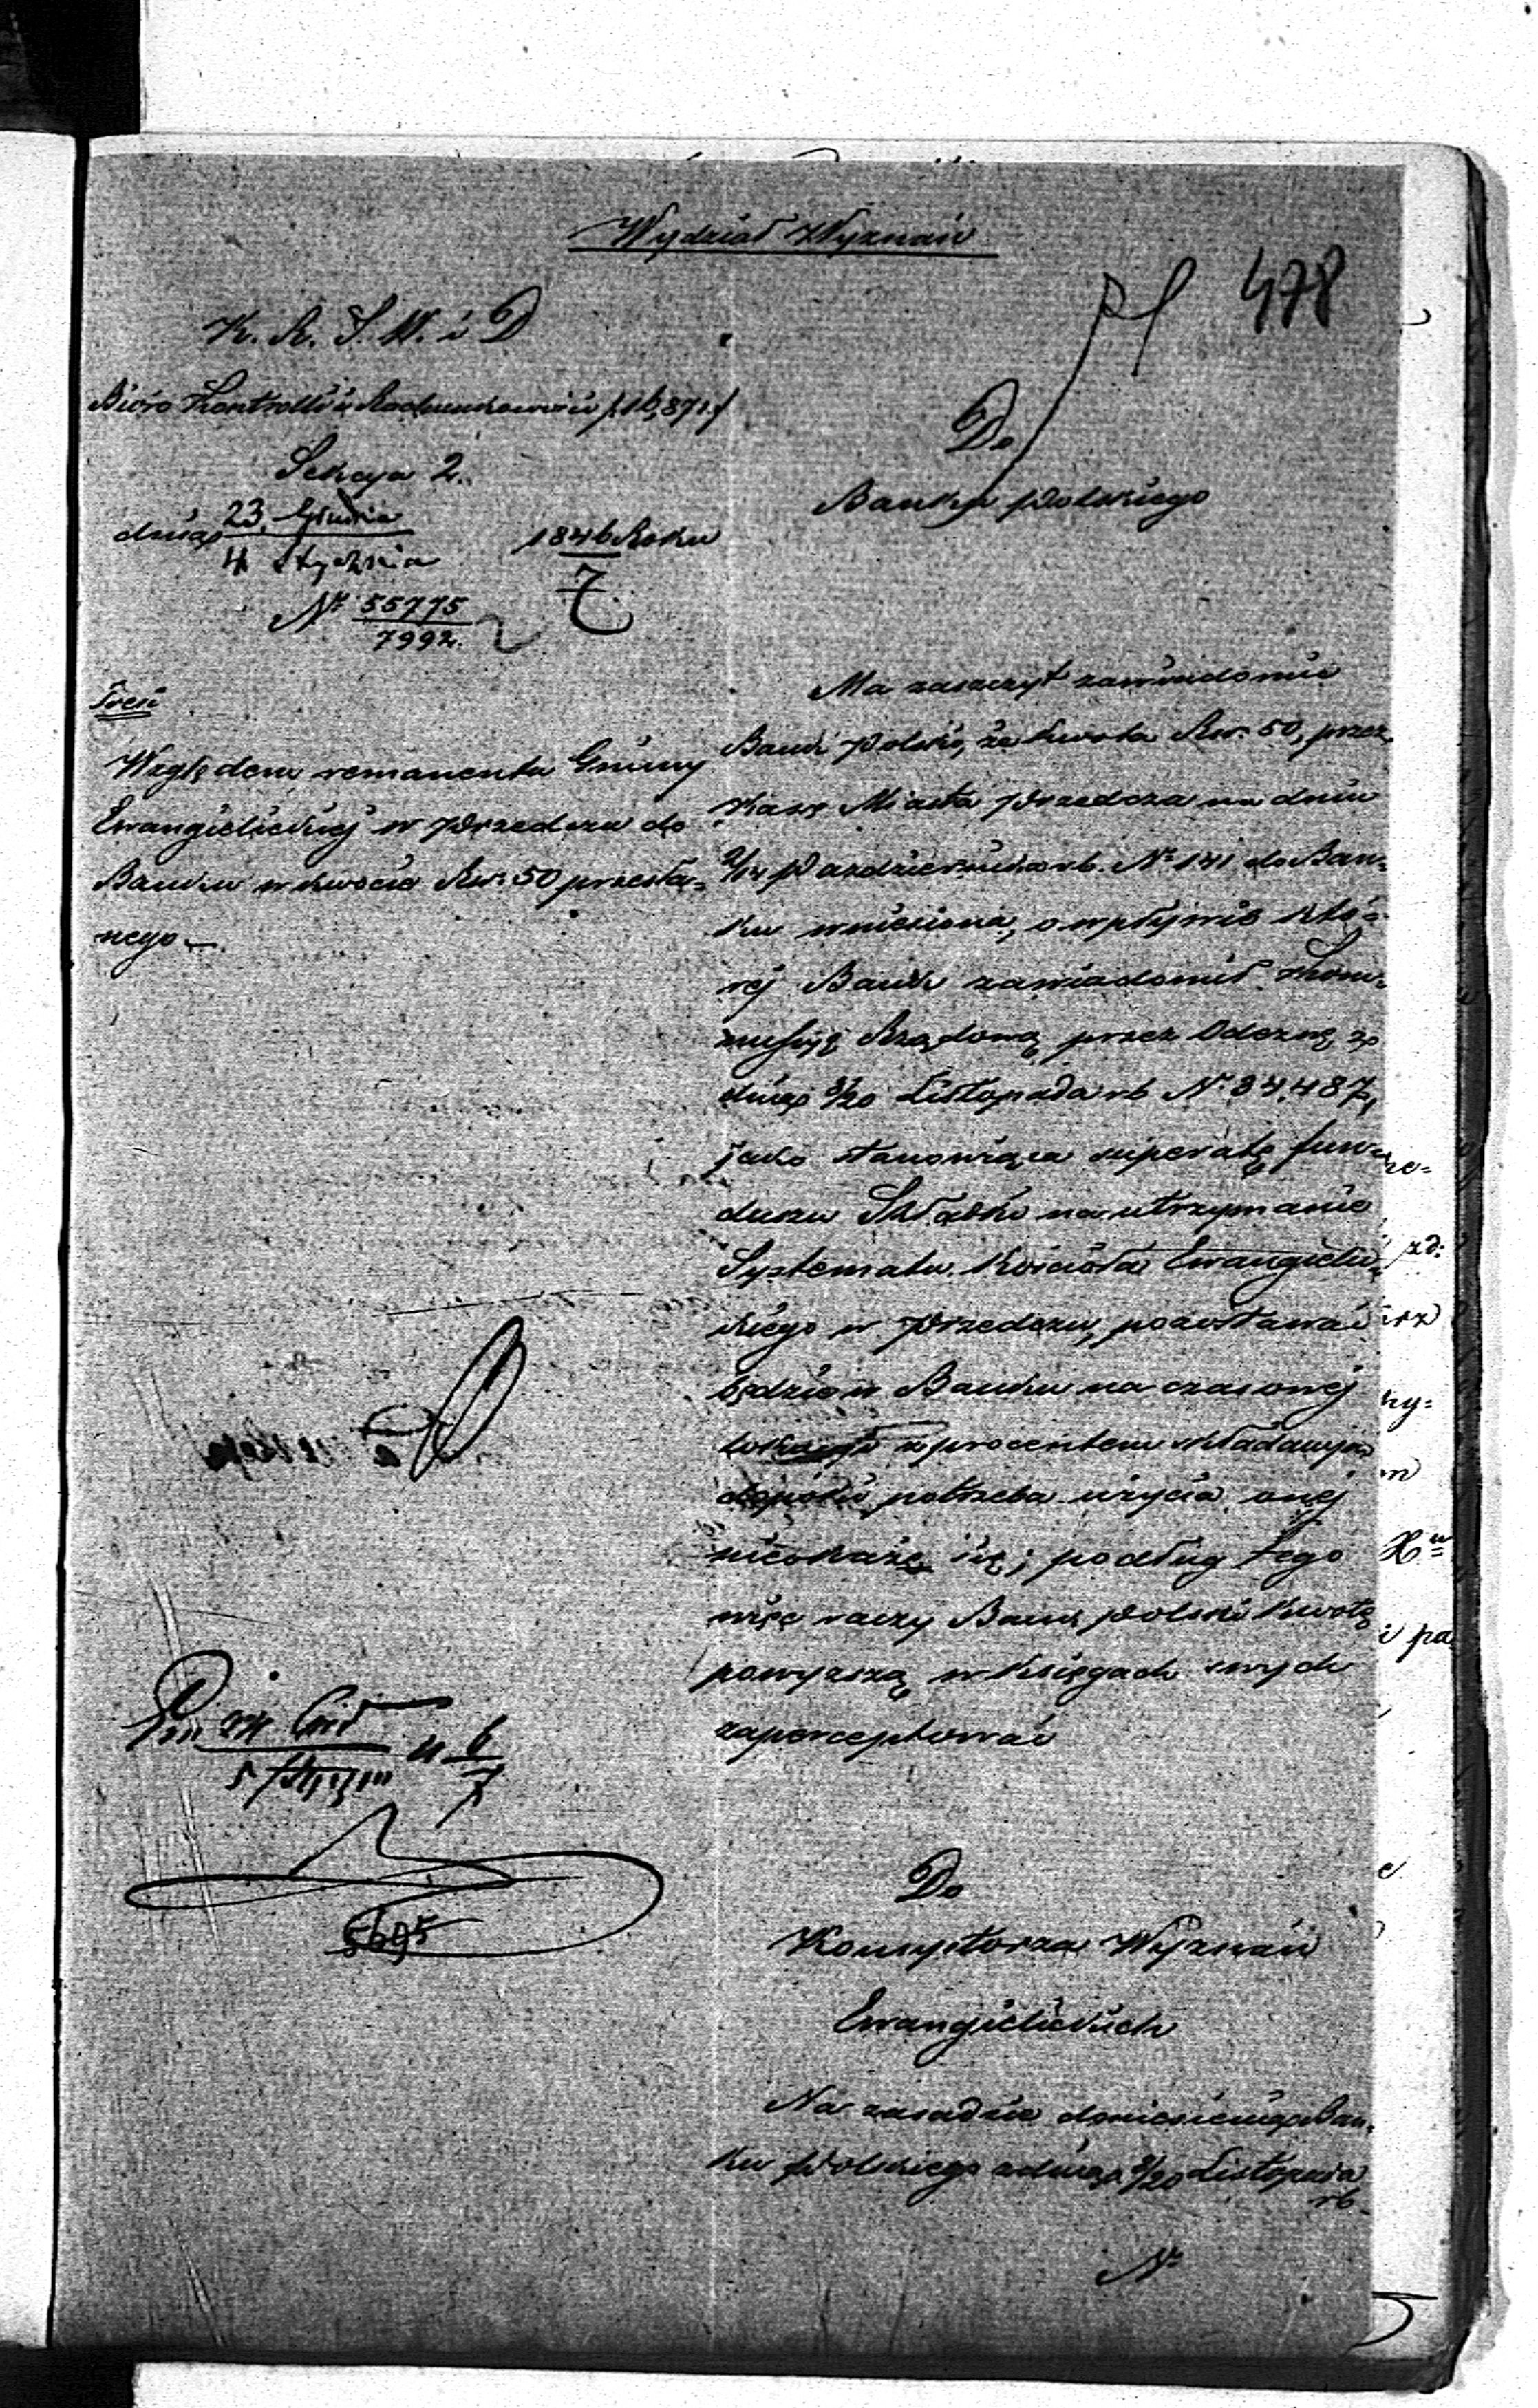 Wydział Wyznań
478
K. R. S. W. i D
Bióro Kontrolli i Rachunkowości /:16,871:/
Sekcya 2.
dnia 23 Grudnia
4 Stycznia
1846 Roku
7
Nr 55775
7992.
Treść
Względem remanentu Gminy
Ewangielickiej w Przedczu do
Banku w kwocie Rsr. 50 przesła-
nego.
Do
Banku Polskiego
Ma zaszczyt zawiadomić
Bank Polski, że kwota Rsr. 50, przez
Kassę Miasta Przedcza na dniu
2/14 Października rb. Nr 141 do Ban-
ku wniesiona, o wpływie któ-
rej Bank zawiadomił Kom-
missyę Rządową przez Odezwę z
dnia 8/20 Listopada rb Nr 34,487,
jako stanowiąca superatę fun-
duszu Składki na utrzymanie
Systematu Kościoła Ewangielic-
kiego w Przedczu, pozostawać
będzie w Banku na czasowej
lokacyi z procentem składanym
dopóki potrzeba użycia onej
nieokaże się; podług tego
więc raczy Bank Polski kwotę
powyższą w księgach swych
zapercepować
5695
Do
Konsystorza Wyznań
Ewangielickich
Na zasadzie doniesienia Ban-
ku Polskiego z dnia 8/20 Listopada
rb.
Nr